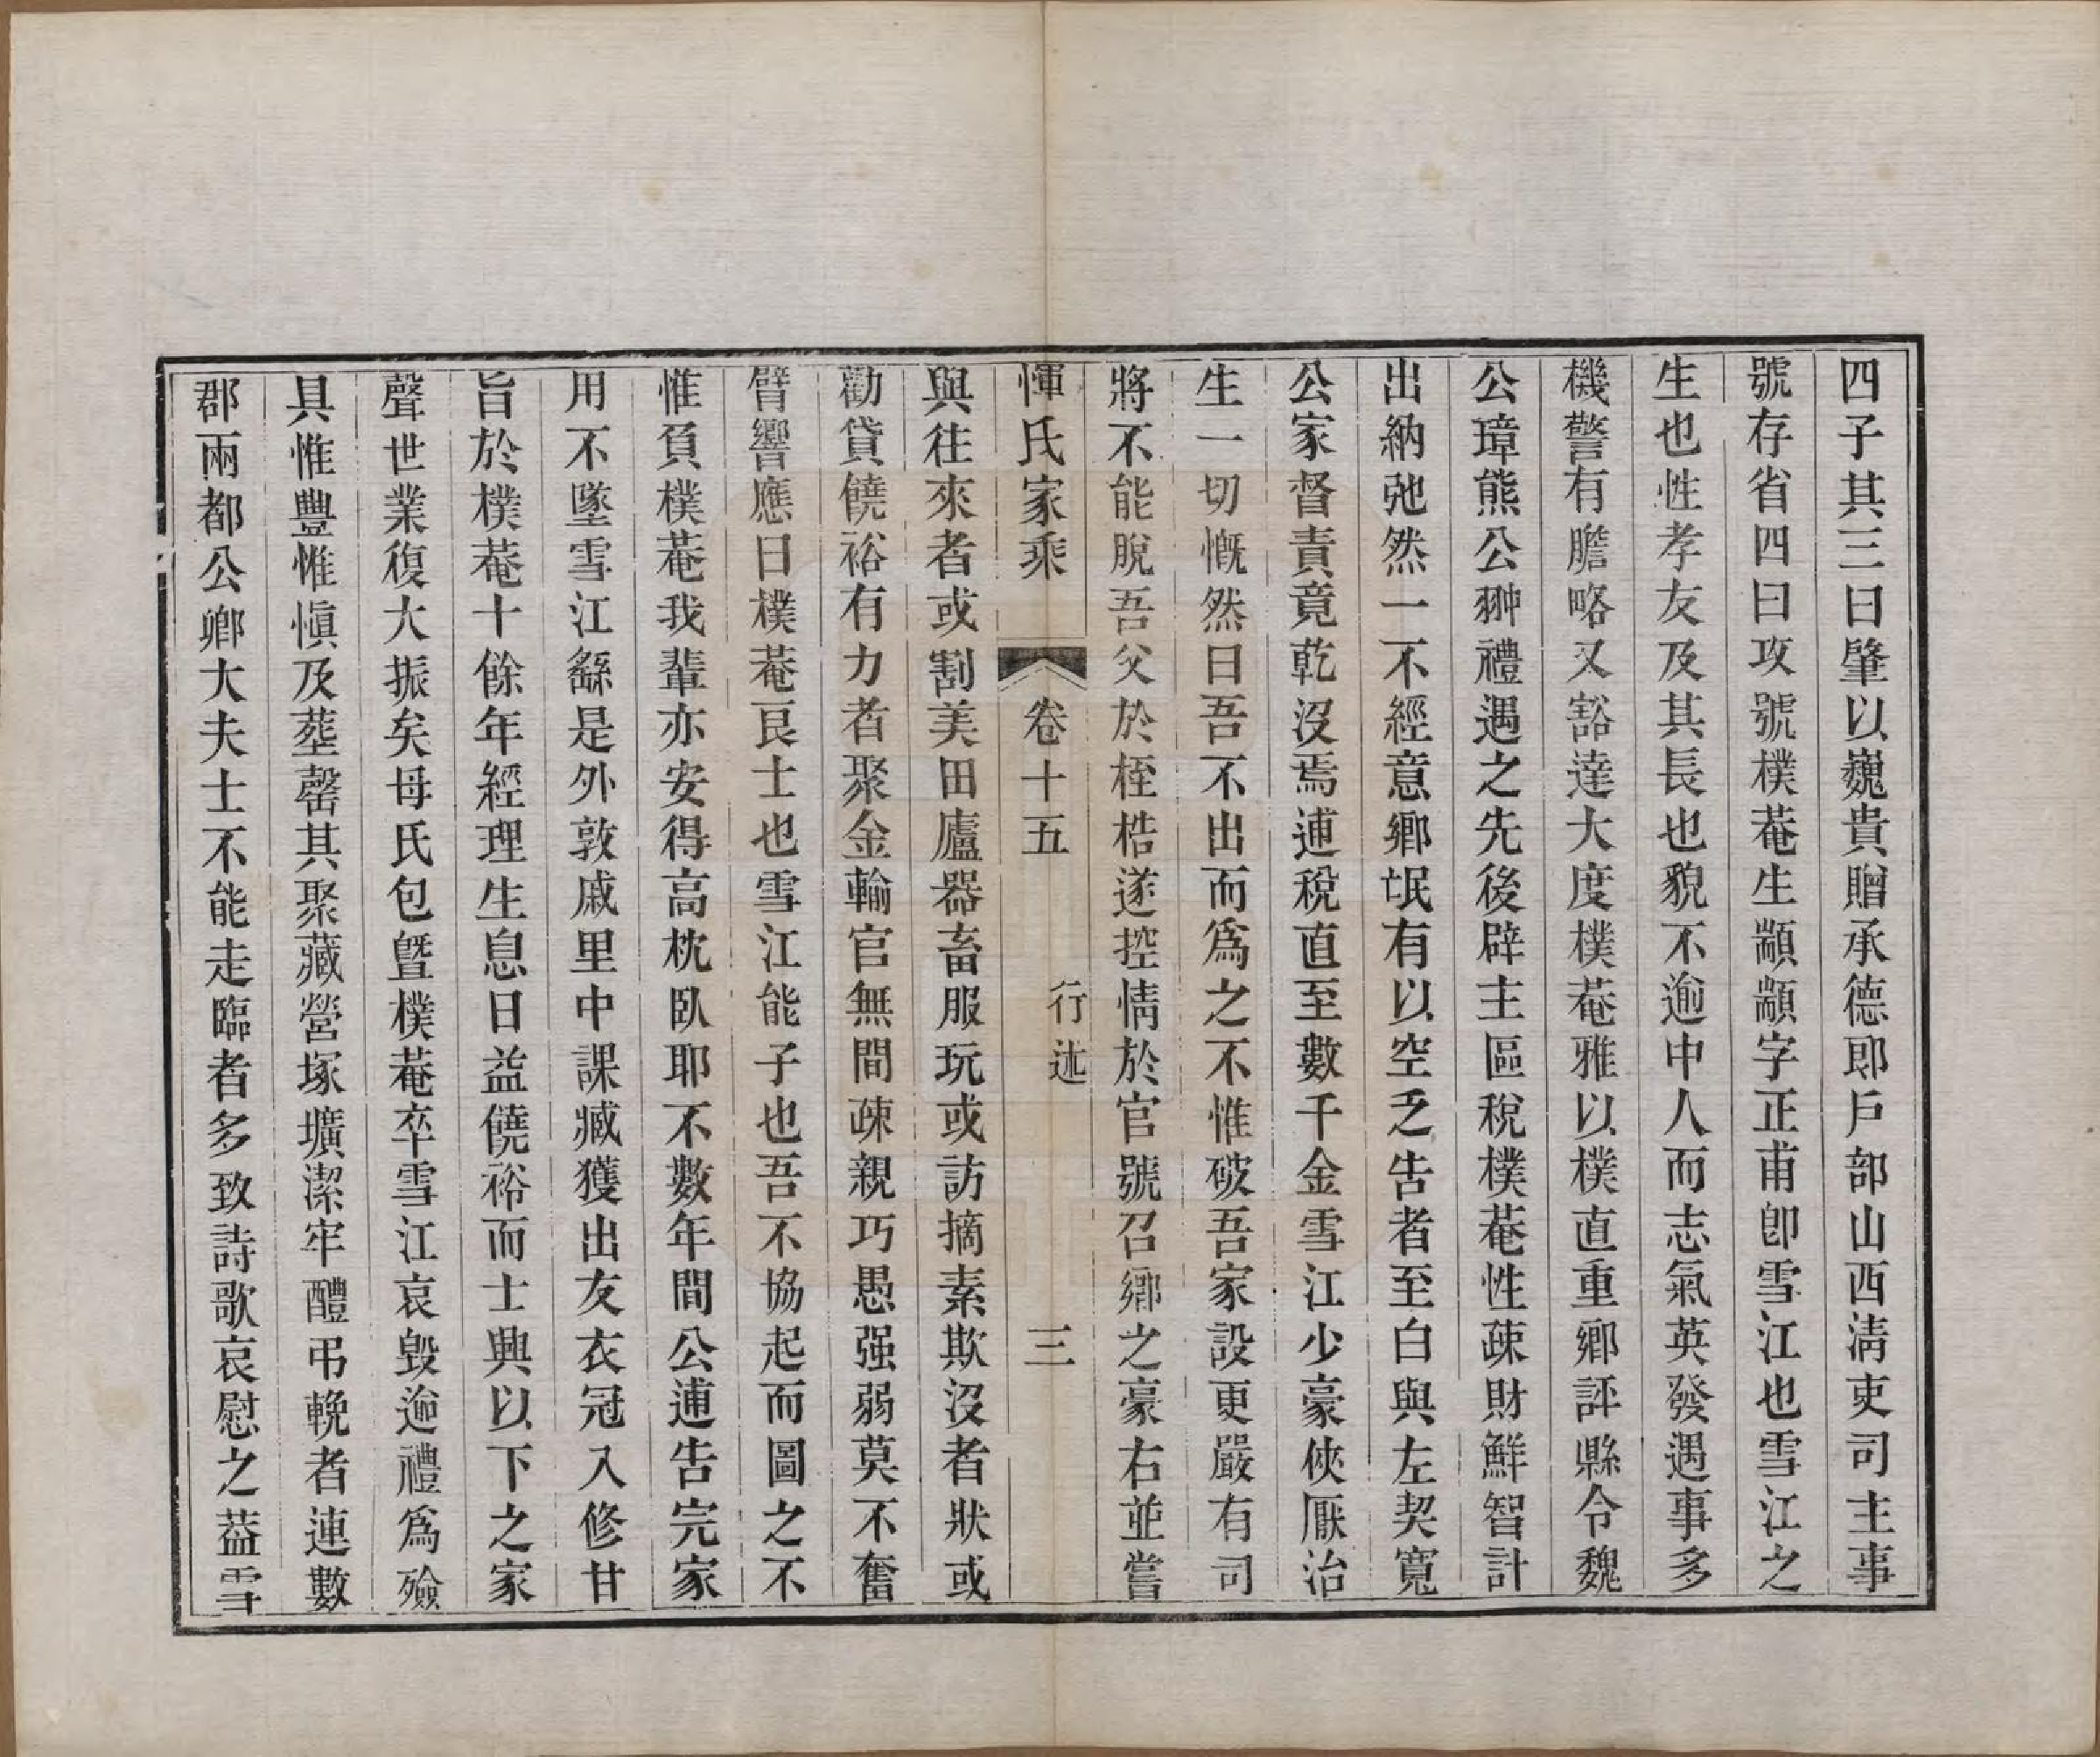 四子其三曰肇以巍貴贈承德郎戶部山西淸吏司主事
號存省四曰攻號樸菴生顓顓字正甫卽雪江也雪江之
生也性孝友及其長也貌不逾中人而志氣英發遇事多
機警有膽略又豁達大度樸菴雅以樸直重鄕評縣令魏
公璋熊公翀禮遇之先後辟主區稅樸菴性疎財鮮智計
出納弛然一不經意鄕氓有以空乏告者至白與左契寬
公家督責竟乾沒焉逋稅直至數千金雪江少豪俠厭治
生一切慨然曰吾不出而爲之不惟破吾家設更嚴有司
將不能脫吾父於桎梏遂控情於官號召鄕之豪右並嘗
惲氏家乘 卷十五 行述 三
與往來者或割美田廬器畜服玩或訪摘素欺沒者狀或
勸貸饒裕有力者聚金輸官無間疎親巧愚强弱莫不奮
臂響應曰樸菴良士也雪江能子也吾不協起而圖之不
惟負樸菴我輩亦安得高枕臥耶不數年間公逋告完家
用不墜雪江繇是外敦戚里中課臧獲出友衣冠入修甘
旨於樸菴十餘年經理生息日益饒裕而士興以下之家
聲世業復大振矣母氏包曁樸菴卒雪江哀毀逾禮爲殮
具惟豐惟愼及塟罄其聚藏營塚壙潔牢醴弔輓者連數
郡兩都公卿大夫士不能走臨者多致詩歌哀慰之葢雪